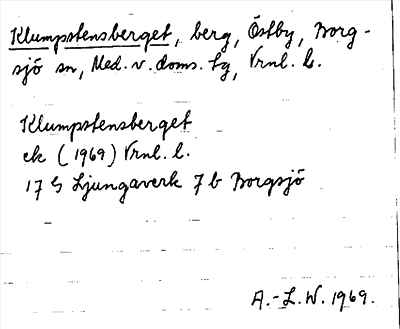 Klumpstensberget, berg, Östby, Borg-
sjö sn, Med. v. doms. tg, Vrnl. l.
Klumpstensberget
ek (1969) Vrnl. l.
17 G Ljungaverk 7 b Borgsjö
A.-L. W. 1969.